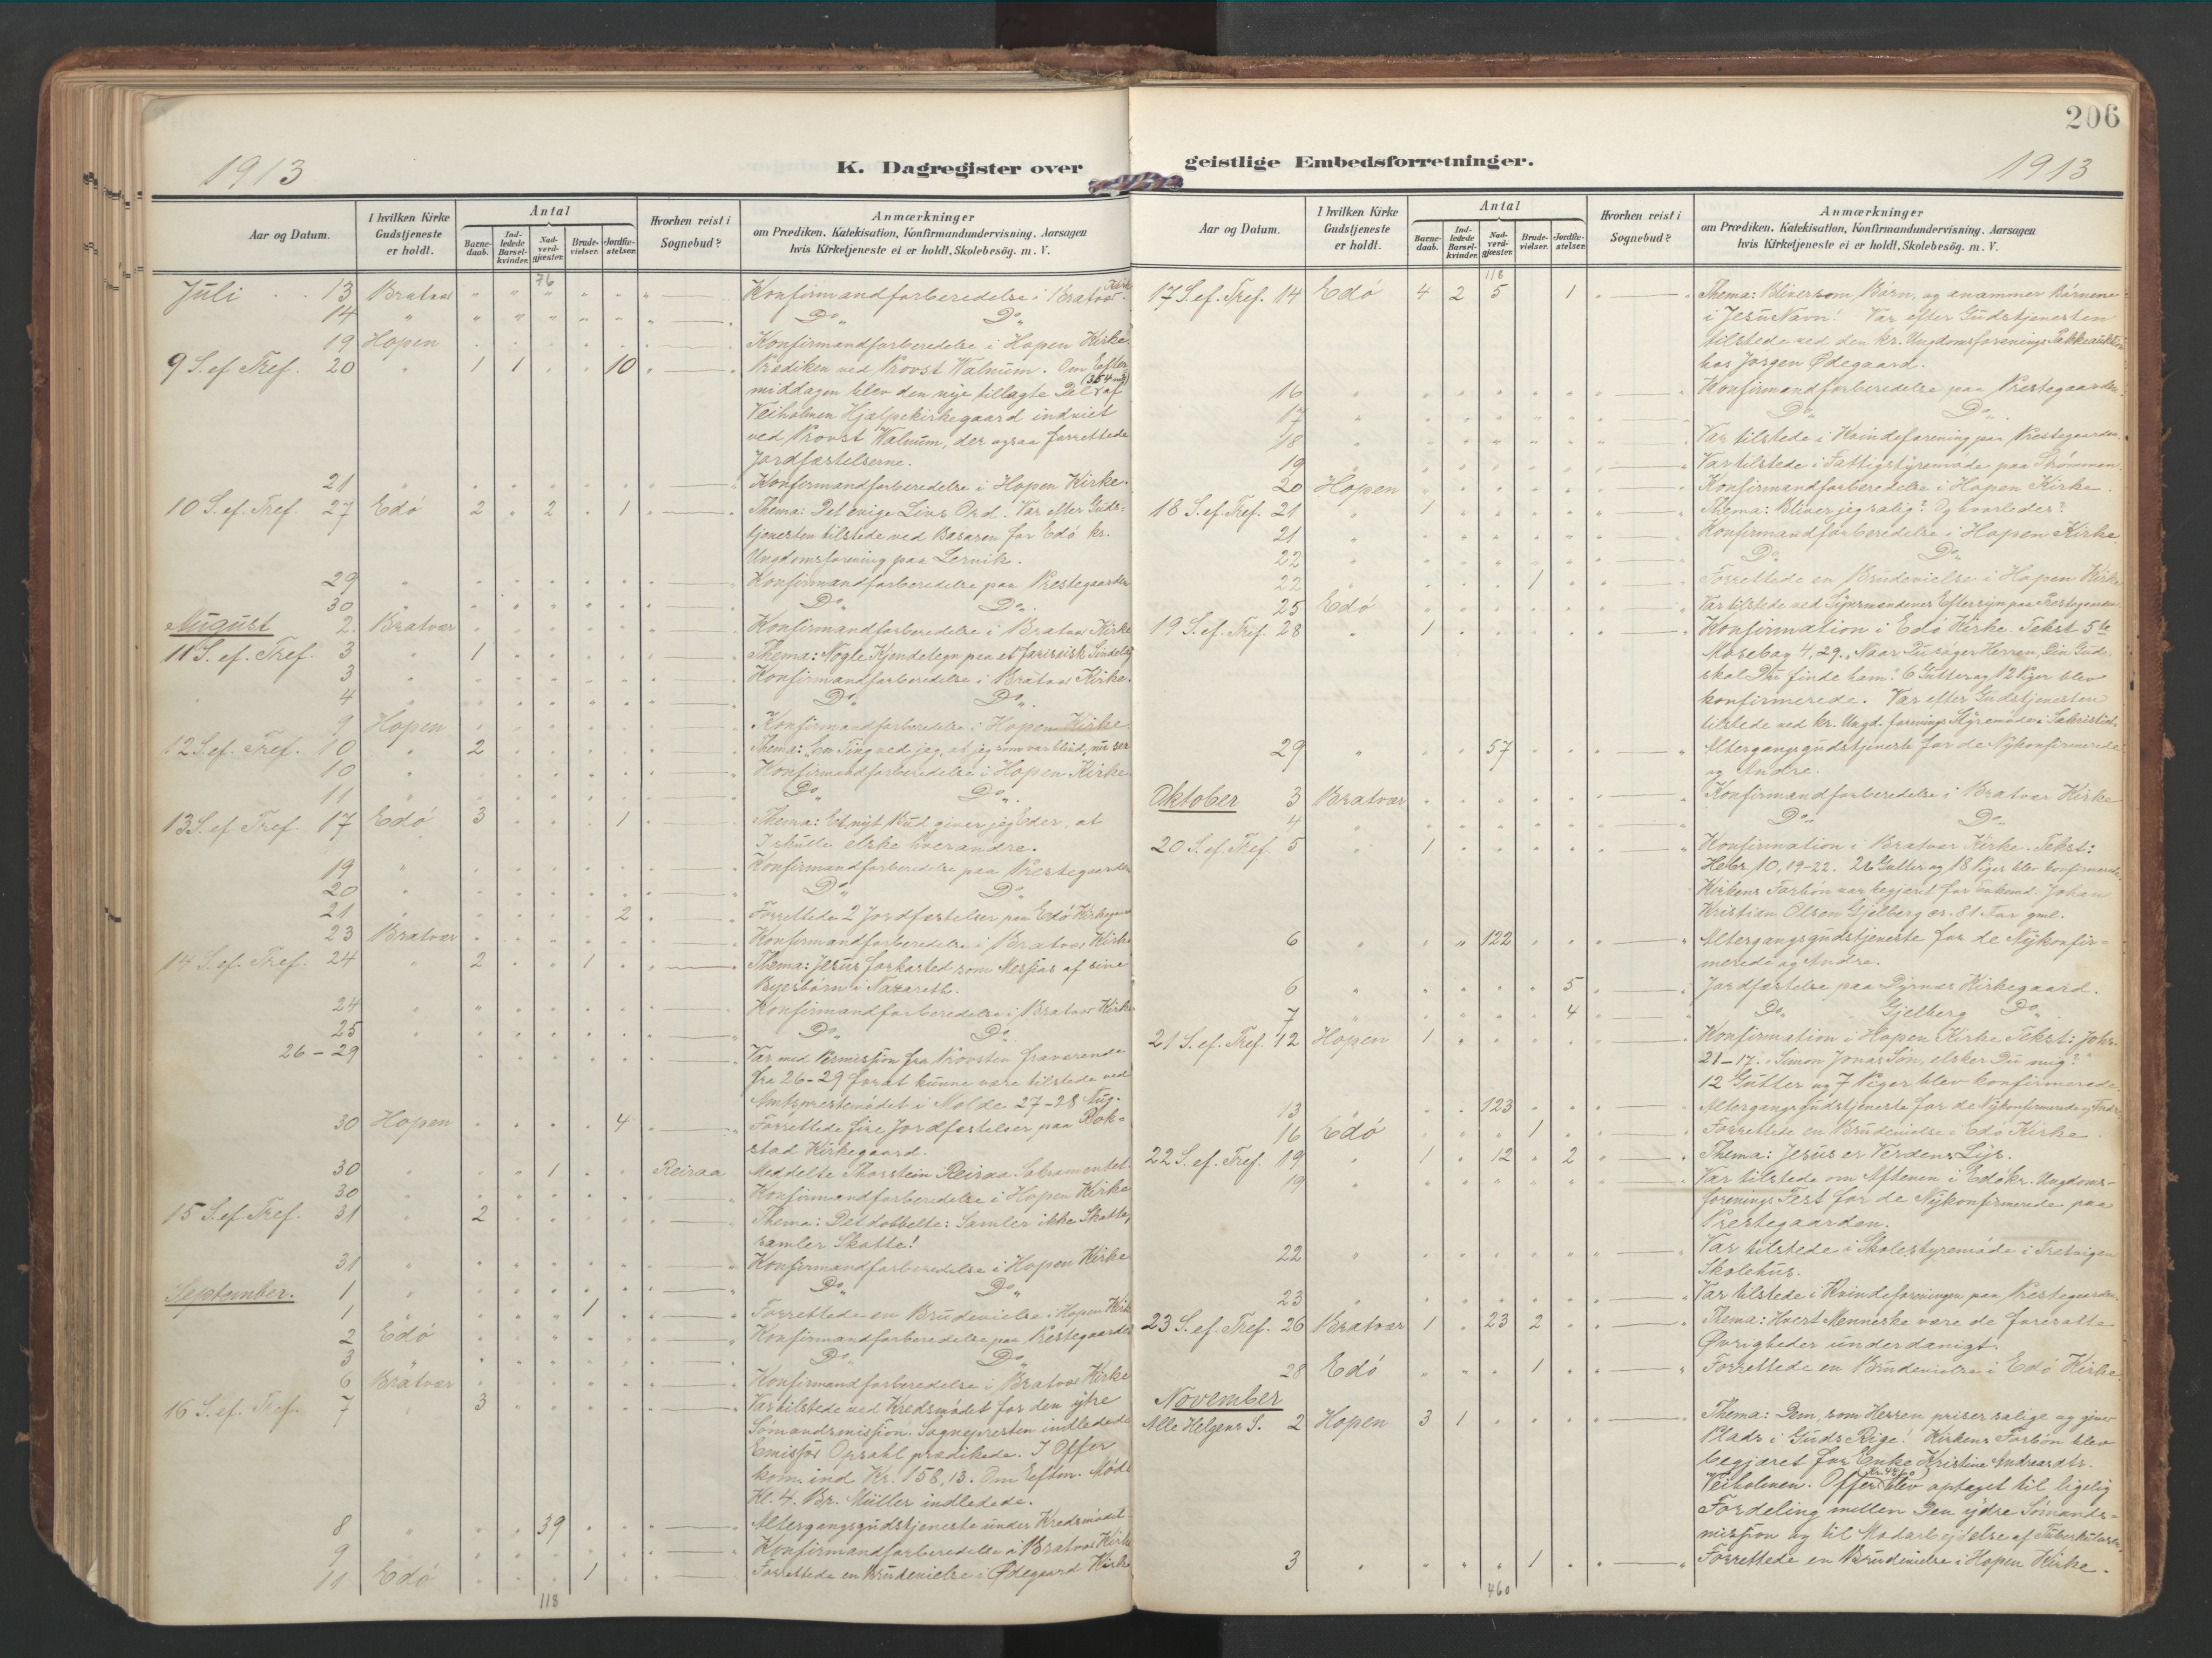 206
1913
K. Dagregister over geistlige Embedsforretninger.
1913
Aar og Datum.
I hvilken Kirke Gudstjeneste er holdt.
Antal
Barne-daab.
Ind-ledede Barsel-kvinder.
Nad-verd-gjæster.
Brude-vielser.
Jordfæ-stelser.
Hvorhen reist i Sognebud?
Anmærkninger
om Prædiken. Katekisation, Konfirmandundervisning. Aarsagen
hvis Kirketjeneste ei er holdt, Skolebesög. m. V.
76
Juli 13 Bratvær Konfirmandforberedelse i Bratvær Kirke
14 " Do Do
19 Hopen Konfirmandforberedelse i Hopen Kirke
9 S. ef. Tref. 20 " 1 1 10 Prædiken ved Provst Walnum. Om Efter-
middagen blev den nye tillagte Del af (354 m²)
Veiholmen Hjælpekirkegaard indviet
ved Provst Walnum, der ogsaa forrettede
Jordfæstelserne.
21 " Konfirmandforberedelse i Hopen Kirke.
10 S. ef. Tref. 27 Edö 2 2 1 Thema: Det evige Livs Ord. Var efter Guds-
tjenesten tilstede ved Basaren for Edö kr.
Ungdomsforening paa Lervik.
29 " Konfirmandforberedelse paa Prestegaarden
30 " Do Do
August 2. Bratvær Konfirmandforberedelse i Bratvær Kirke
11 S. ef. Tref. 3 " 1 Thema: Nogle Kjendetegn paa et farisæisk Sindelag
3 " Konfirmandforberedelse i Bratvær Kirke.
4 " Do Do
9 Hopen Konfirmandforberedelse i Hopen Kirke
12 S. ef. Tref. 10 " 2 Thema: Een Ting ved jeg, at jeg som var blind, nu ser
10 " Konfirmandforberedelse i Hopen Kirke
11 " Do Do
13 S. ef. Tref. 17 Edö 3 1 Thema: Et nyt Bud giver jeg Eder, at
I skulle elske hverandre.
19 " Konfirmandforberedelse paa Prestegaarden
20 " Do Do
21 " 2 Forrettede 2 Jordfæstelser paa Edö Kirkegaard
23 Bratvær Konfirmandforberedelse i Bratvær Kirke
14 S. ef. Tref. 24 " 2 1 Thema: Jesus forkasted som Messias af sine
Byesbörn i Nazareth.
24 " Konfirmandforberedelse i Bratvær Kirke
25 " Do Do
26-29 Var med Permission fra Provsten fraværende
fra 26-29 forat kunne være tilstede ved
Amtsprestemödet i Molde 27-28 Aug.
30 Hopen 4 Forrettede fire Jordfæstelser paa Rok-
stad Kirkegaard.
30 " 1 Reiraa Meddelte Thorstein Reiraa Sakramentet
30 " Konfirmandforberedelse i Hopen Kirke
15 S. ef. Tref. 31 " 2 Thema: Det dobbelte: Samler ikke Skatte,
samler Skatte!
31 " Konfirmandforberedelse i Hopen Kirke
September. 1 " Do Do
1 " 1 Forrettede en Brudevielse i Hopen Kirke
2 Edö Konfirmandforberedelse paa Prestegaarden
3 " Do Do
6 Bratvær Konfirmandforberedelse i Bratvær Kirke
16 S. ef. Tref. 7 " 3 Var tilstede ved Kredsmödet for den ytre
Sömandsmission. Sognepresten indledede
Emissær Opsahl prædikede. I Offer
kom ind Kr. 158,13. Om Eftm. Möde
Kl. 4. Br. Müller indledede.
8 " 39 Altergangsgudstjeneste under Kredsmödet
9 " Konfirmandforberedelse i Bratvær Kirke
11 Edö 1 Forrettede en Brudevielse i Ødegaard Kirke
118
Aar og Datum.
I hvilken Kirke Gudstjeneste er holdt.
Antal
Barne-daab.
Ind-ledede Barsel-kvinder.
Nad-verd-gjæster.
Brude-vielser.
Jordfæ-stelser.
Hvorhen reist i Sognebud?
Anmærkninger
om Prædiken. Katekisation, Konfirmandundervisning. Aarsagen
hvis Kirketjeneste ei er holdt, Skolebesög. m. V.
118
17 S. ef. Tref. 14 Edö 4 2 5 1 Thema: Bliver som Börn, og anammer Börnene
i Jesu Navn! Var efter Gudstjenesten
tilstede ved den kr. Ungdomsforenings Pakkeauktion
hos Jorgen Ødegaard.
16 " Konfirmandforberedelse paa Prestegaarden
17 " Do Do
18 " Var tilstede i Kvindeforening paa Prestegaarden
19 " Var tilstede i Fattigstyremöde paa Strömmen
20 Hopen Konfirmandforberedelse i Hopen Kirke.
18 S. ef. Tref. 21 " 1 Thema: Bliver jeg salig? Og hvorledes?
21 " Konfirmandforberedelse i Hopen Kirke
22 " Do Do
22 " 1 Forrettede en Brudevielse i Hopen Kirke
25 Edö Var tilstede ved paa Prestegaarden
19 S. ef. Tref. 28 " 1 Konfirmation i Edö Kirke. Tekst 5te
Mosebog 4,29. Naar Du söger Herren, Din Gud,
skal Du finde ham. 6 Gutter og 12 Piger blev
konfirmerede. Var efter Gudstjenesten
tilstede ved kr. Ungd. forenings Styremöde i Sakristiet.
29 " 57 Altergangsgudstjeneste for de Nykonfirmerede
og Andre.
Oktober 3 Bratvær Konfirmandforberedelse i Bratvær Kirke
4 " Do Do
20 S. ef. Tref. 5 " 1 Konfirmation i Bratvær Kirke. Tekst:
Hebr. 10, 19-22. 26 Gutter og 18 Piger blev konfirmerede.
Kirkens Forbön var begjæret for Enkemd. Johan
Kristian Olsen Gjelberg æs. 81 Aar gml.
6 " 122 Altergangsgudstjeneste for de Nykonfir-
merede og Andre.
6 " 5 Jordfæstelse paa Dyrnæs Kirkegaard.
7 " 4 Do Gjelberg Do
21 S. ef. Tref. 12 Hopen 1 Konfirmation i Hopen Kirke Tekst: Johs.
21-17. "Simon Jonas Sön, elsker Du mig?"
12 Gutter og 7 Piger blev konfirmerede.
13 123 Altergangsgudstjeneste for de Nykonfirmerede og Andre
16 Edö 1 Forrettede en Brudevielse i Edö Kirke.
22 S. ef. Tref. 19 " 1 12 2 Thema: Jesus er Verdens Lys.
19 " Var tilstede om Aftenen i Edö kr. Ungdoms-
forenings Fest for de Nykonfirmerede paa
Prestegaarden.
22 " Var tilstede i Skolestyremöde i Tretvigen
Skolehus.
23 " Var tilstede i Kvindeforeningen paa Prestegaarden
23 S. ef. Tref. 26 Bratvær 1 23 2 Thema: Hvert Menneske være de foresatte
Øvrigheder underdanigt.
28 Edö 1 Forrettede en Brudevielse i Edö Kirke.
November
Alle Helgens S. 2 Hopen 3 1 Thema: Dem, som Herren priser salige og giver
Plads i Guds Rige! Kirkens Forbön blev
begjæret for Enke Kristine Andræsdtr.
Veiholmen. Offer (Kr. 44,60) blev optaget til ligelig
Fordeling mellem Den ydre Sömands-
mission og til Modarbejdelse af Tuberkulosen.
3 " 1 Forrettede en Brudevielse i Hopen Kirke.
460